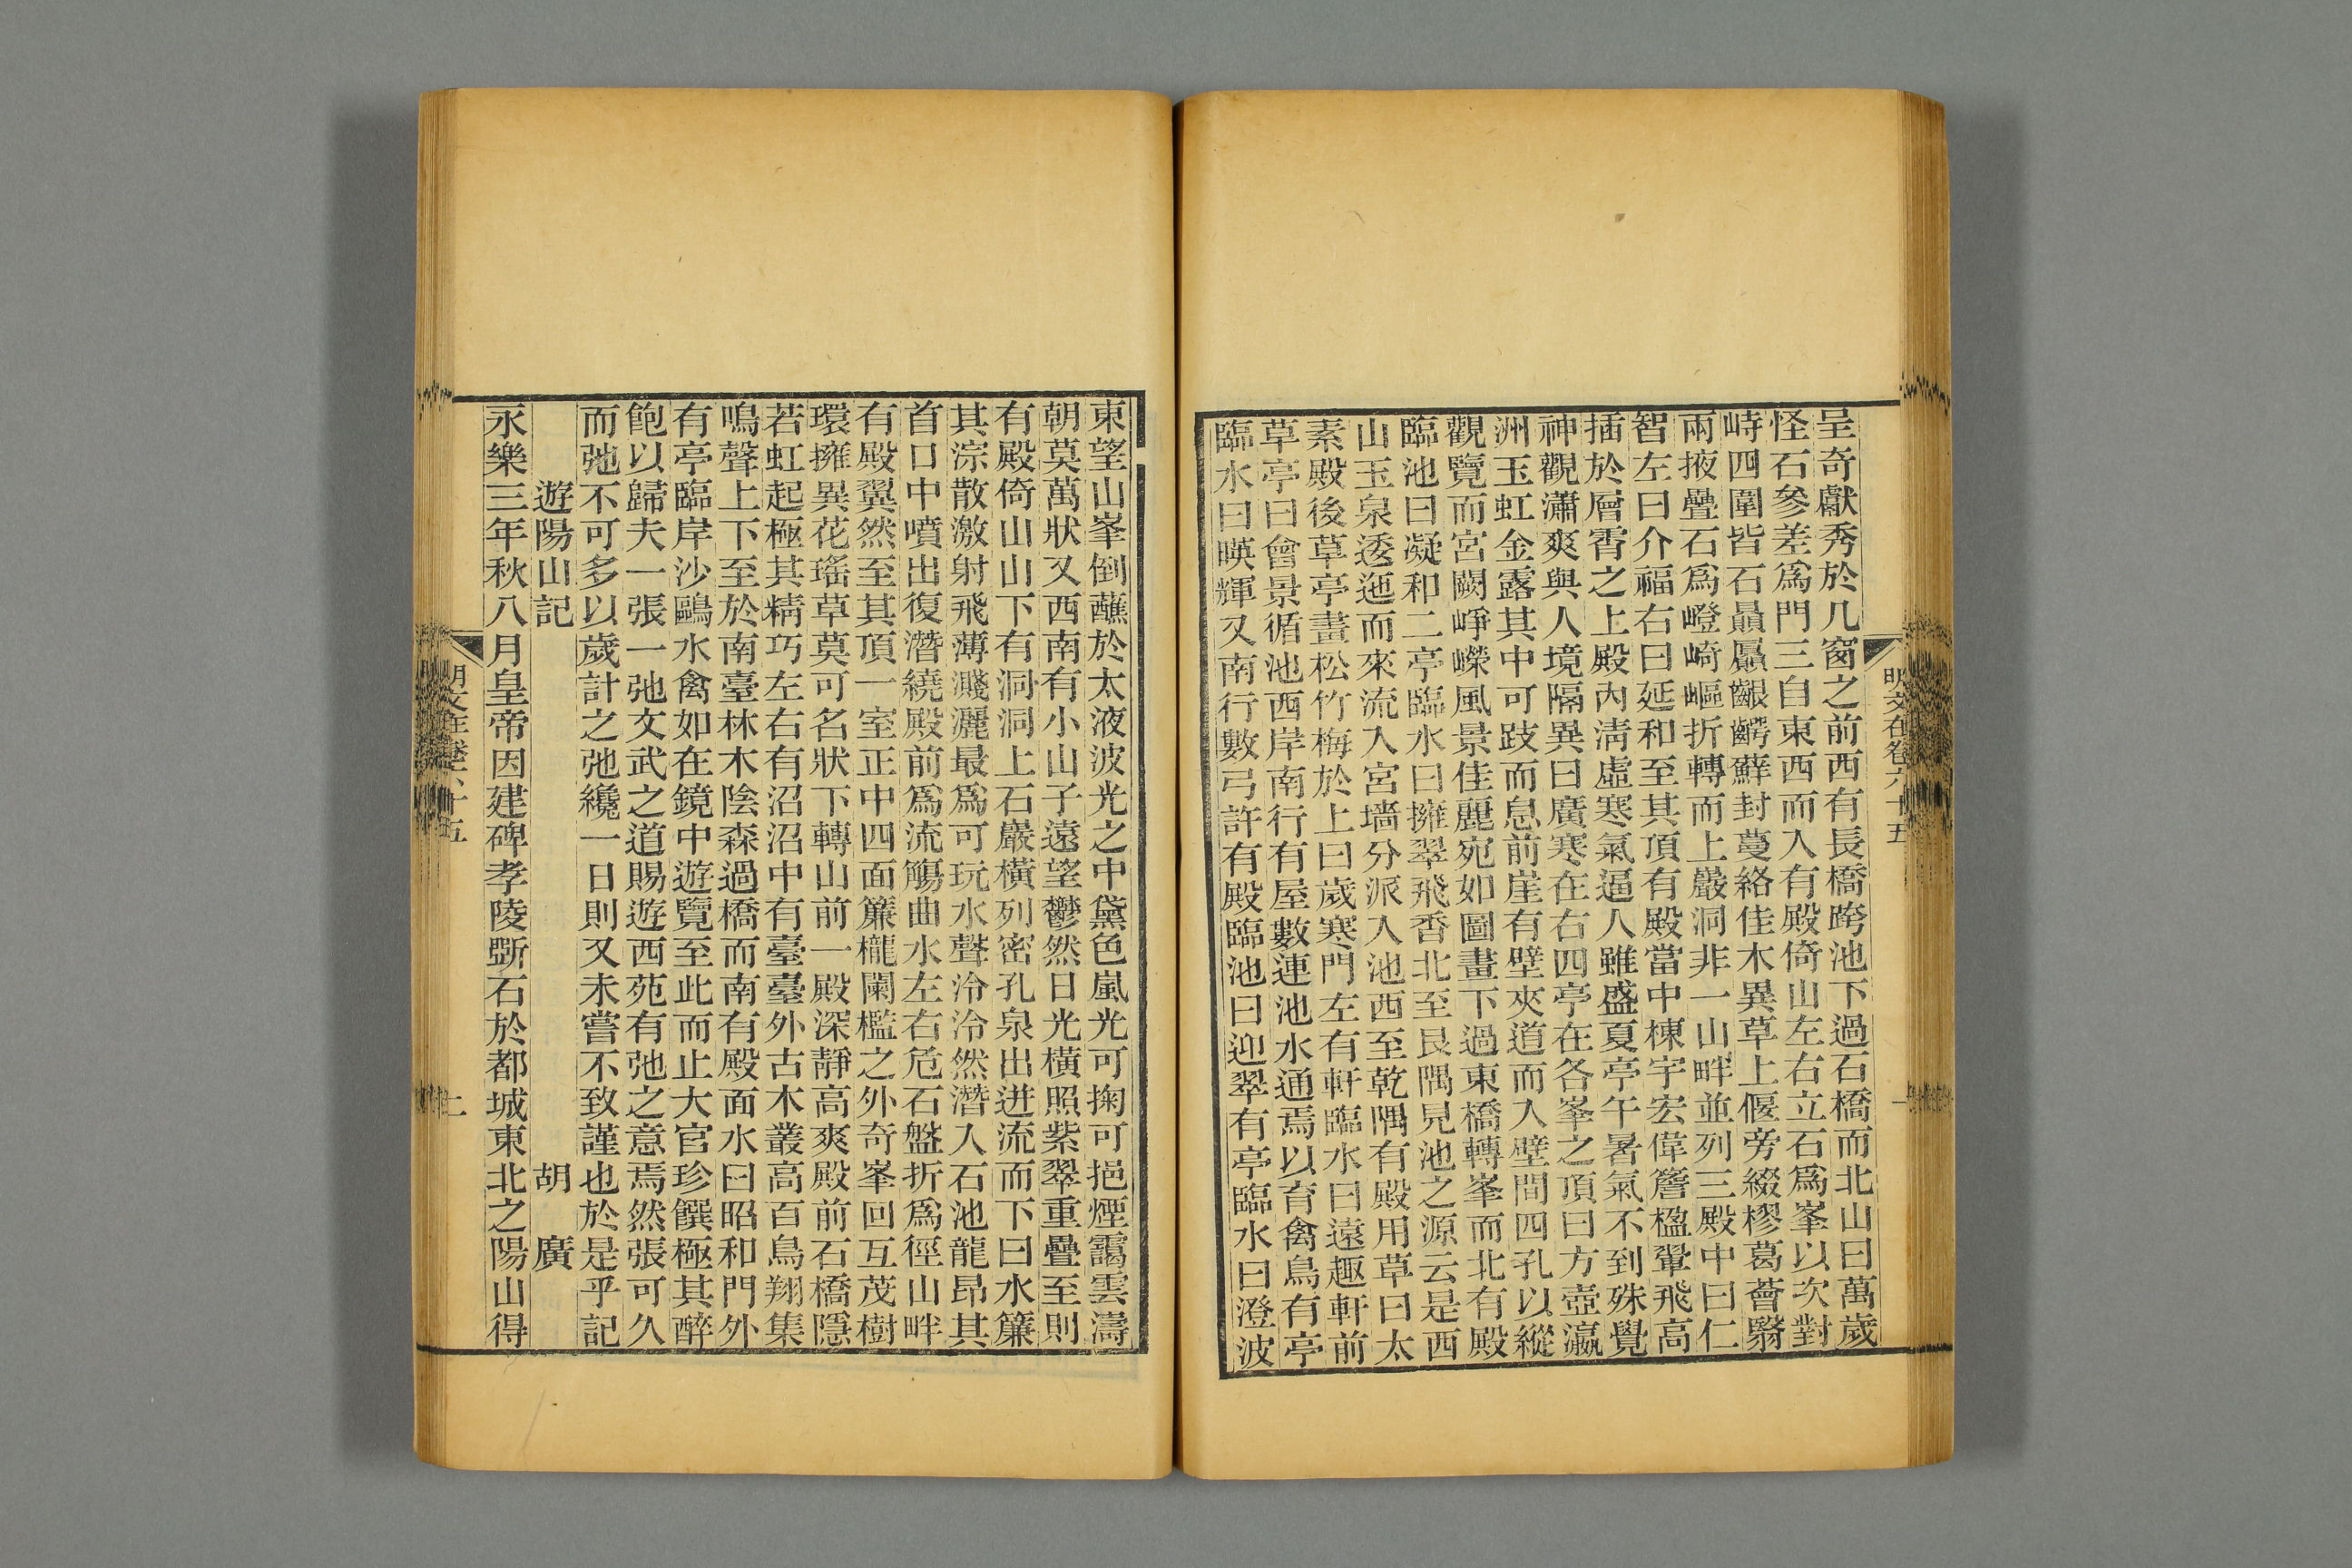 明文在卷六十五
一
呈奇獻秀於几窗之前西有長橋跨池下過石橋而北山曰萬歲
怪石參差爲門三自東西而入有殿倚山左右立石爲峯以次對
峙四圍皆石贔屭齦齶蘚封蔓絡佳木異草上偃旁綴樛葛薈翳
兩掖疊石爲嶝崎嶇折轉而上巖洞非一山畔並列三殿中曰仁
智左曰介福右曰延和至其頂有殿當中棟宇宏偉簷楹翬飛高
插於層霄之上殿內淸虛寒氣逼人雖盛夏亭午暑氣不到殊覺
神觀瀟爽與人境隔異曰廣寒在右四亭在各峯之頂曰方壺瀛
洲玉虹金露其中可跂而息前崖有壁夾道而入壁間四孔以縱
觀覽而宮闕崢嶸風景佳麗宛如圖畫下過東橋轉峯而北有殿
臨池曰凝和二亭臨水曰擁翠飛香北至艮隅見池之源云是西
山玉泉逶迤而來流入宮墻分派入池西至乾隅有殿用草曰太
素殿後草亭畫松竹梅於上曰歲寒門左有軒臨水曰遠趣軒前
草亭曰會景循池西岸南行有屋數連池水通焉以育禽鳥有亭
臨水曰暎輝又南行數弓許有殿臨池曰迎翠有亭臨水曰澄波
東望山峯倒蘸於太液波光之中黛色嵐光可掬可挹煙靄雲濤
朝莫萬狀又西南有小山子遠望鬱然日光橫照紫翠重疊至則
有殿倚山山下有洞洞上石巖橫列密孔泉出迸流而下曰水簾
其淙散激射飛薄濺灑最爲可玩水聲泠泠然潛入石池龍昂其
首口中噴出復潛繞殿前爲流觴曲水左右危石盤折爲徑山畔
有殿翼然至其頂一室正中四面簾櫳闌檻之外奇峯回互茂樹
環擁異花瑤草莫可名狀下轉山前一殿深靜高爽殿前石橋隱
若虹起極其精巧左右有沼沼中有臺臺外古木叢高百鳥翔集
鳴聲上下至於南臺林木陰森過橋而南有殿面水曰昭和門外
有亭臨岸沙鷗水禽如在鏡中遊覽至此而止大官珍饌極其醉
飽以歸夫一張一弛文武之道賜遊西苑有弛之意焉然張可久
而弛不可多以歲計之弛纔一日則又未嘗不致謹也於是乎記
遊陽山記 胡 廣
永樂三年秋八月皇帝因建碑孝陵斲石於都城東北之陽山得
明文在卷六十五
二